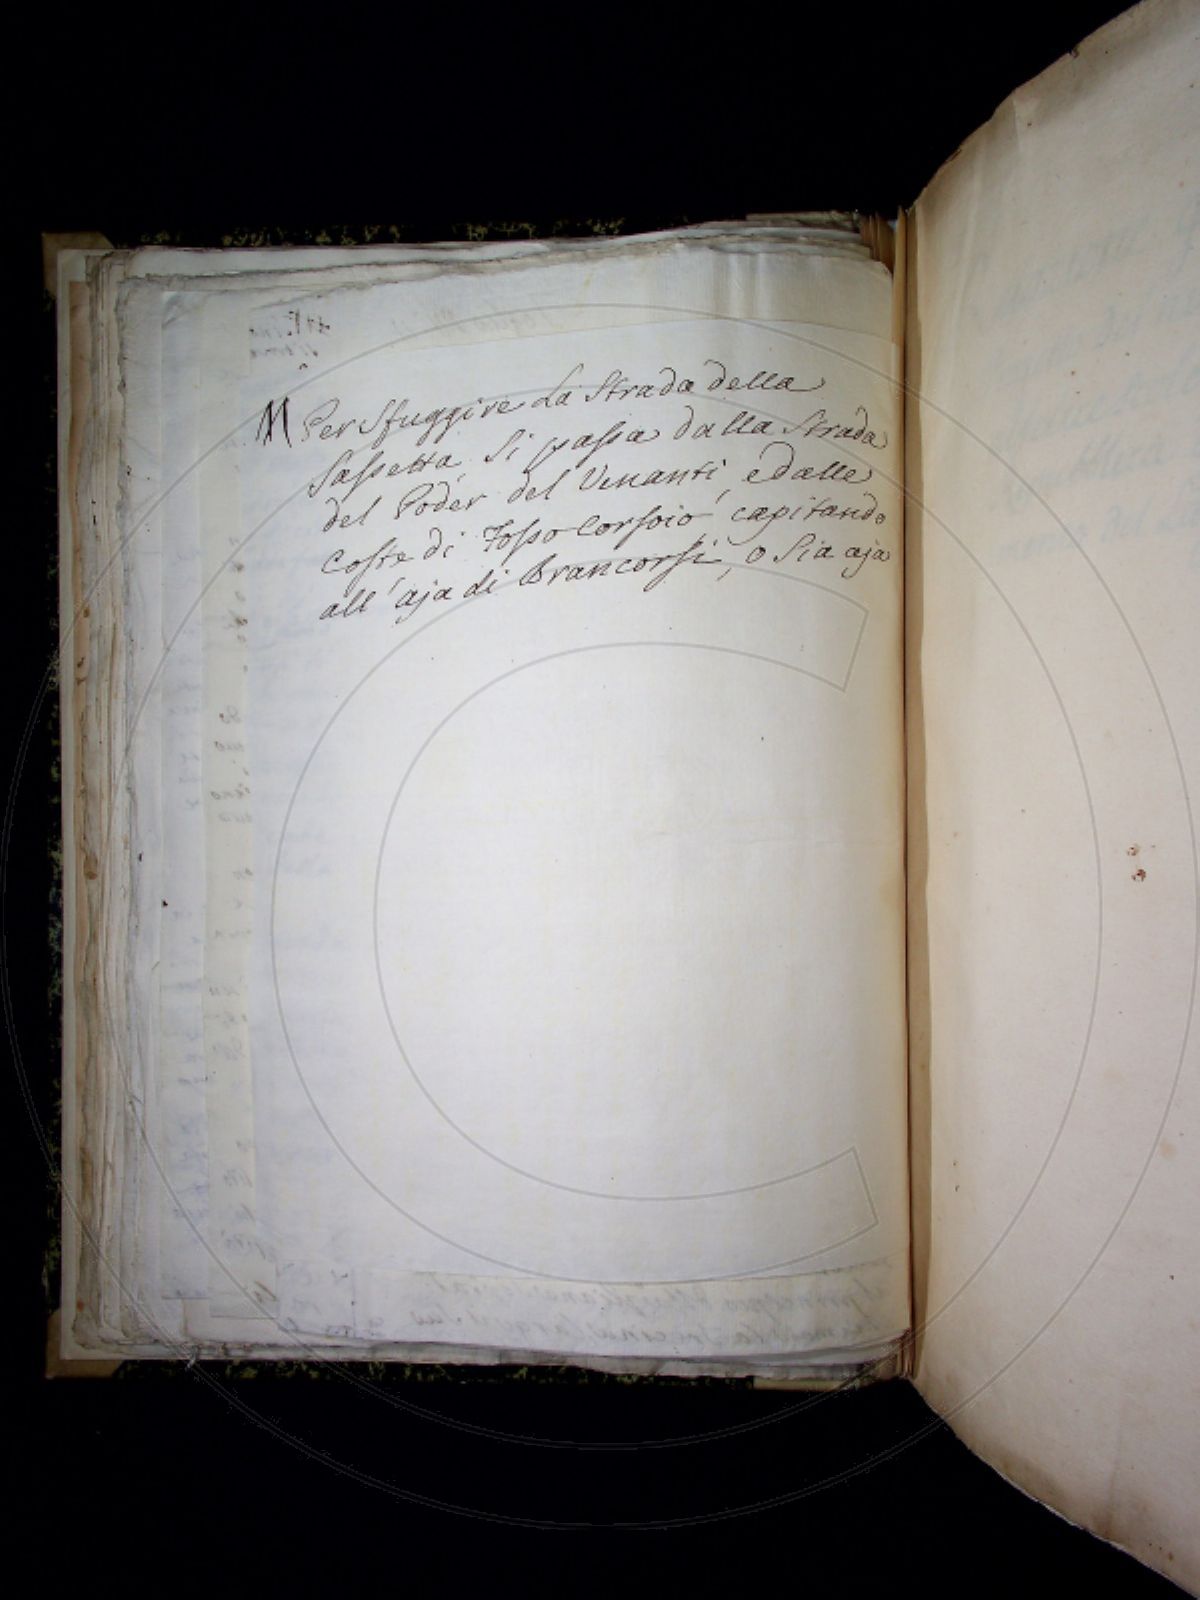 M Per Sfuggire La Strada della
Sassetta, Si passa dalla Strada
del Poder del Venanti, e dalle
Coste di Fosso Corsoio, capitando
all'aja di Brancorsi, o Sia aja